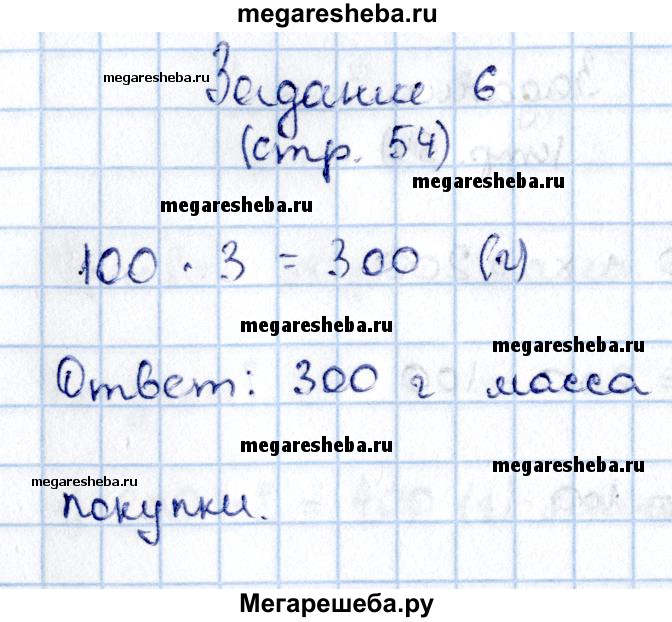 megaresheba.ru
megaresheba.ru
Задание 6
(стр. 54)
megaresheba.ru
megaresheba.ru
100 · 3 = 300 (г)
megaresheba.ru
megaresheba.ru
Ответ: 300 г масса
megaresheba.ru
megaresheba.ru
megaresheba.ru
покупки.
Мегарешеба.ру